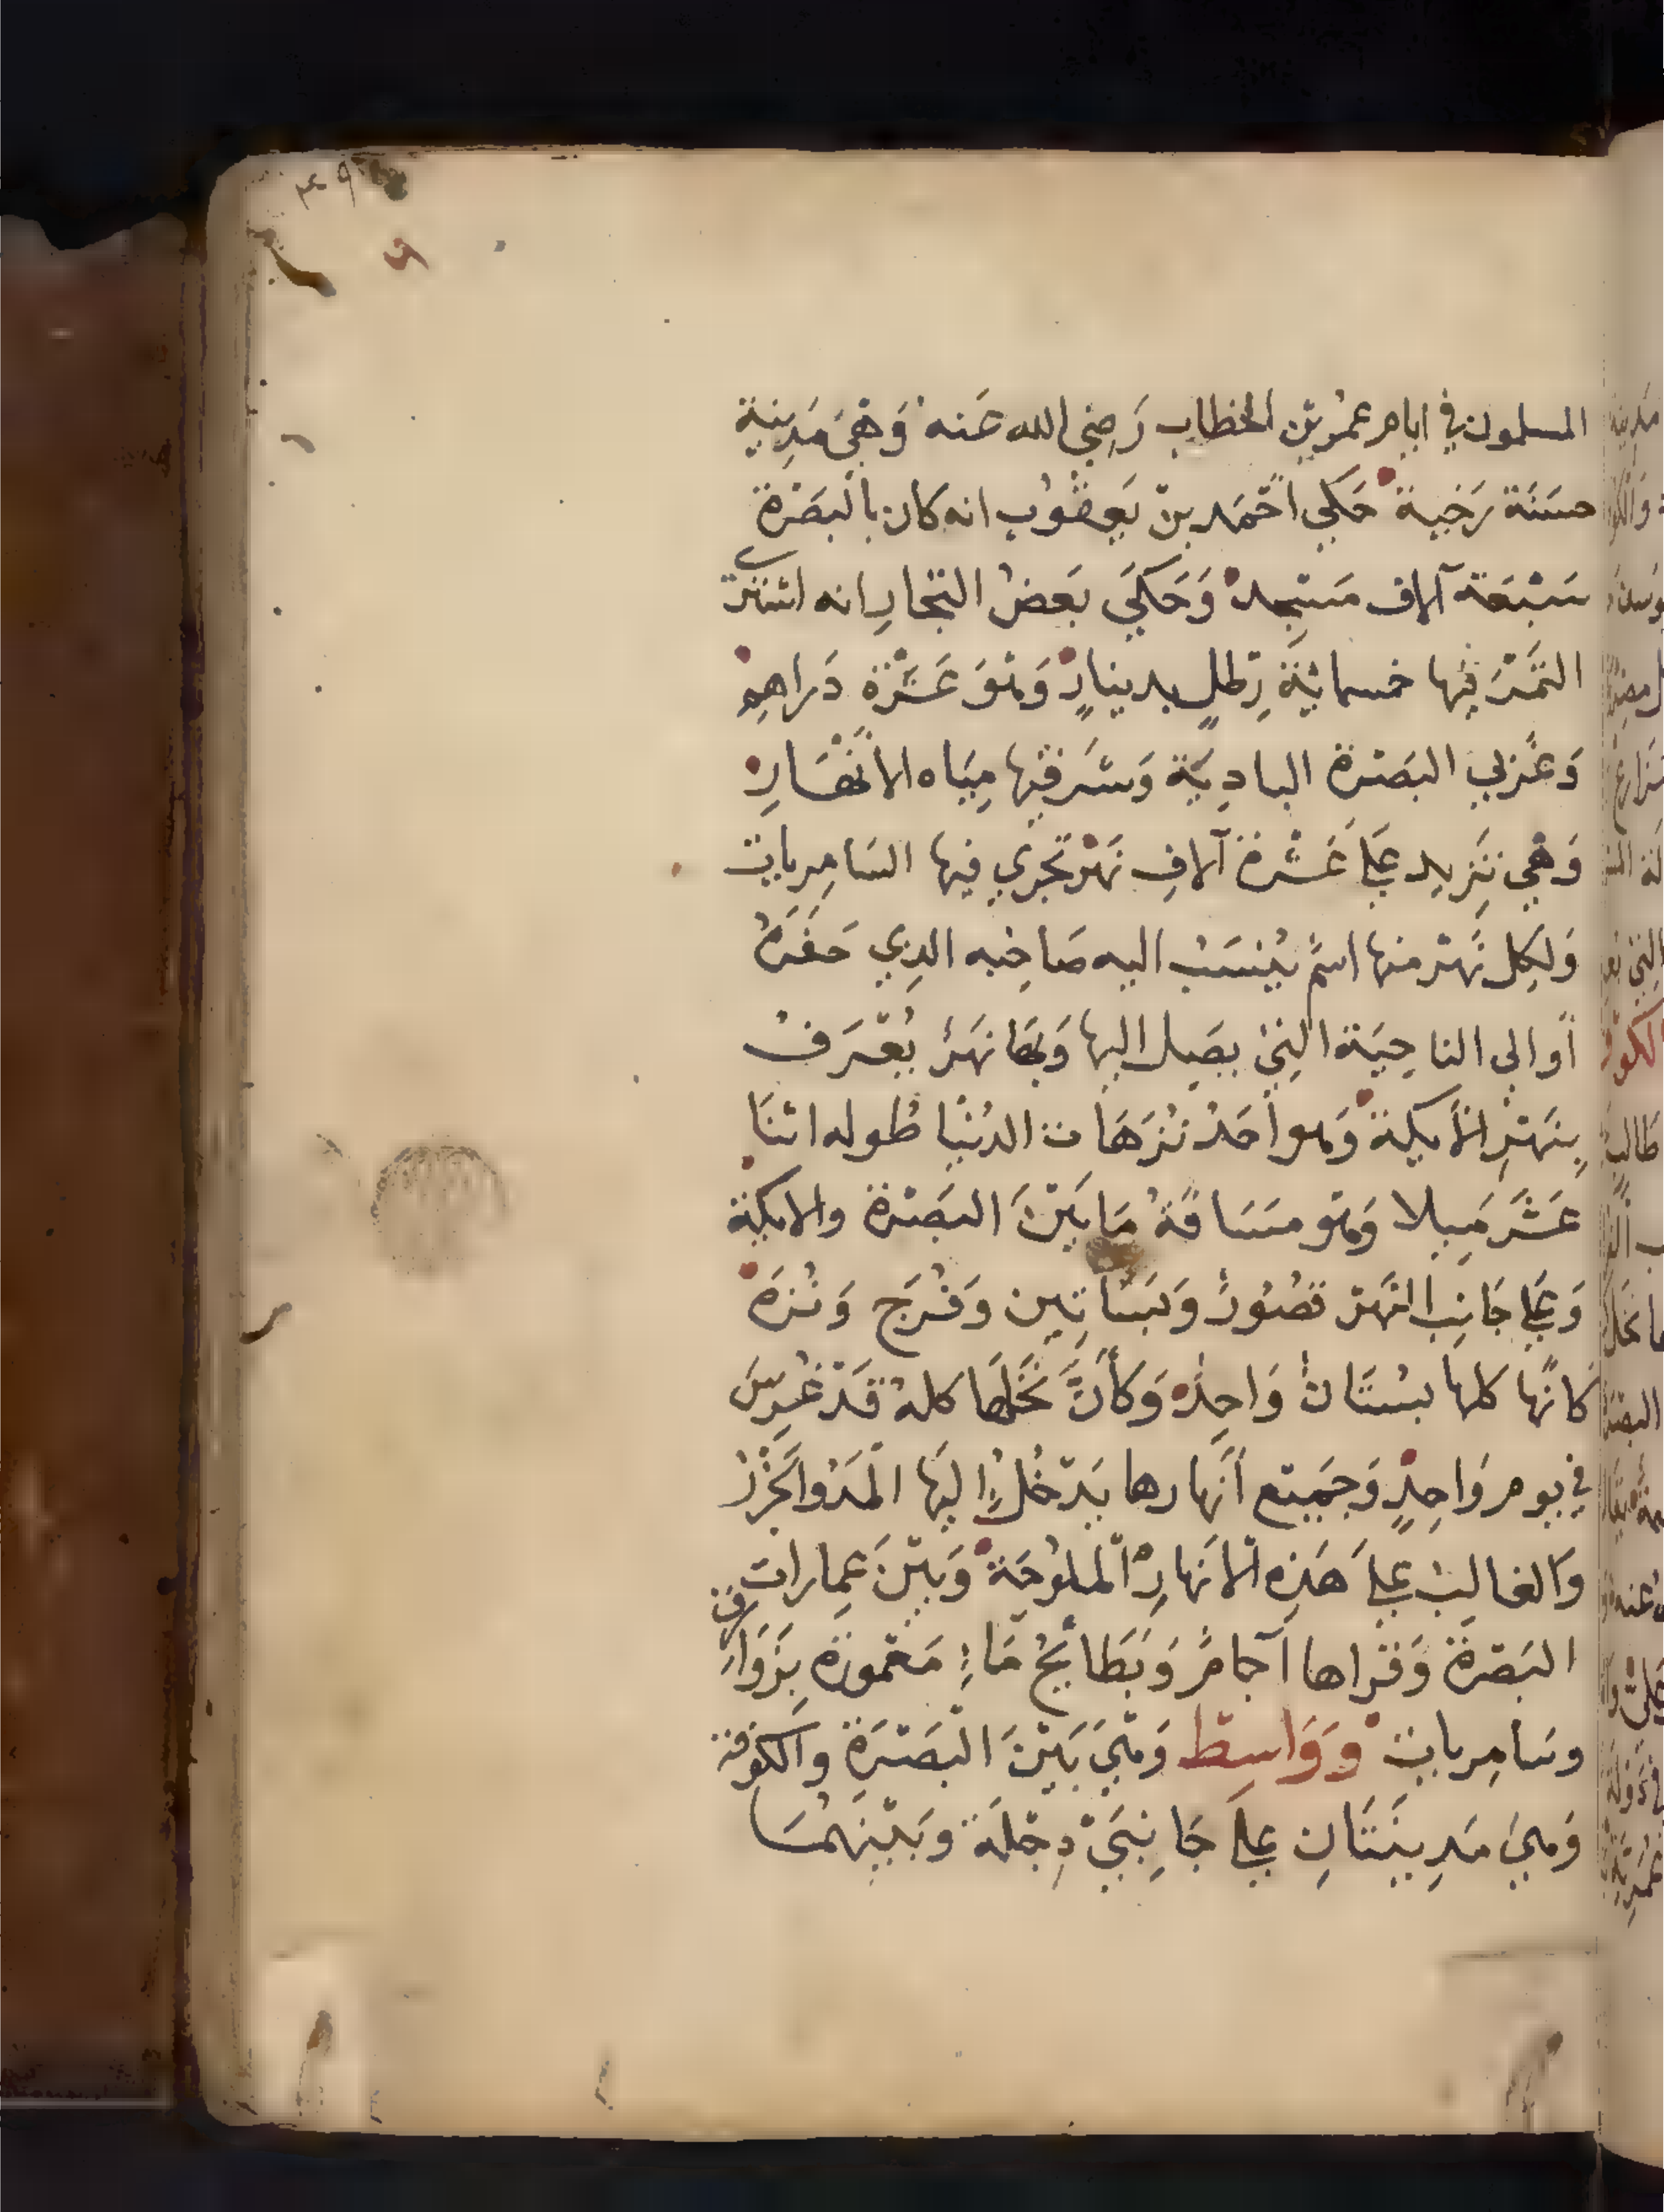 ٤٩
المسلمون في ايام عمر بن الخطاب رَضِي الله عَنه وَهْيَ مَدِينة
حسَنَة رَخية حَكي أحْمَد بنْ يَعقُوب انه كان بالبَصْرة
سَبْعَة آلاف مَسْجِد وَحَكَيَ بَعضُ التجارِ انه اشترى
التَمْرَ فيها خمسمائِة رِطلٍ بدينارٍ وَهْوَ عَشْرَة دَراهِم
وَغَربي البَصْرة البادِيَة وَشَرقيها مِيَاه الأنْهَارِ
وَهْي تَزِيد عَلَى عَشْرة آلافِ نَهْر تجري فيها السَامِريات
وَلِكل نَهْر منها اسْمٌ يُنسَبُ اليه صَاحِبه الذِي حَفَرَهُ
أو الي الناحِيَة التِيْ يصَل اليها وَبهَا نهَرٌ يُعْرَفُ
بِنهْرِ الأيكة وَهو أحَدُ نُزَهَات الدُنْيا طُوله اثنَا
عَشَر مِيلا وَهْو مسَافَةُ مَا بَيْنَ البَصْرة والايكة
وَعَلَى جَانِب النَهْر قصُورٌ وَبَسَاتِين وَفُرَج وَنُزَه
كَانها كلها بسْتَانٌ وَاحِدٌ وَكَأنَّ نَخَلهَا كلهُ قَدْ غُرِسَ
في يوم وَاحِدٍ وَجَميْع أنهارها يَدْخُل إليَها المَدُ وَالجَزْرُ
وَالغالبُ عَلَى هَذِه الأنَهارِ المُلُوحَة وَبيْنَ عِمارات
البَصْرة وَقراها آجامٌ وَبَطَائِحُ مَاءٍ مَعْمورة بِزَوَارِق
وسَامِريات وَوَاسِط وَهْيَ بَيْنَ البَصْرَةِ وَالكوفة
وَهيَ مَدِينَتَانِ عَلَى جَانِبَيْ دِجْلَة وبَيْنهمُا